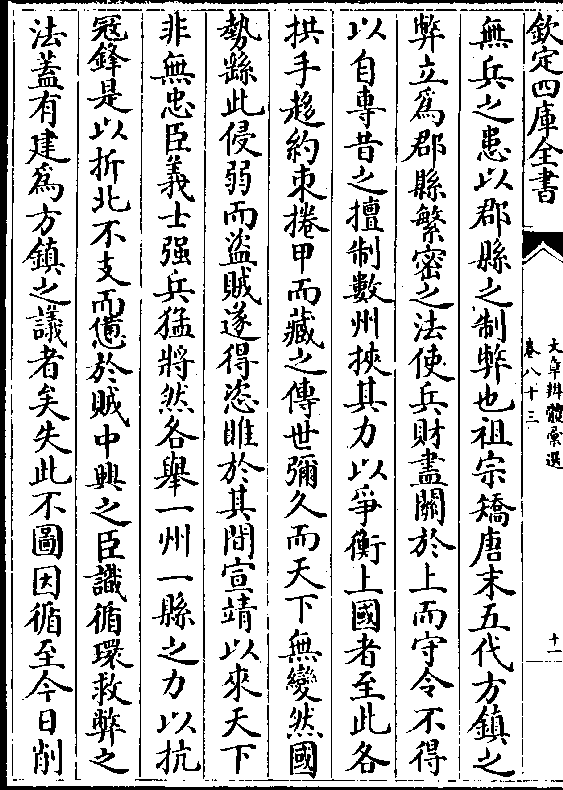 欽定四庫全書
文章辨體彙選
卷八十三
十一
無兵之患以郡縣之制弊也祖宗矯唐末五代方鎮之
弊立為郡縣繁密之法使兵財盡關於上而守令不得
以自專昔之擅制數州挾其力以爭衡上國者至此各
拱手趍約束捲甲而藏之傳世彌久而天下無變然國
勢繇此侵弱而盜賊遂得恣睢於其間宣靖以來天下
非無忠臣義士强兵猛將然各舉一州一縣之力以抗
冦鋒是以折北不支而憊於賊中興之臣識循環救弊之
法蓋有建為方鎮之議者矣失此不圖因循至今日削